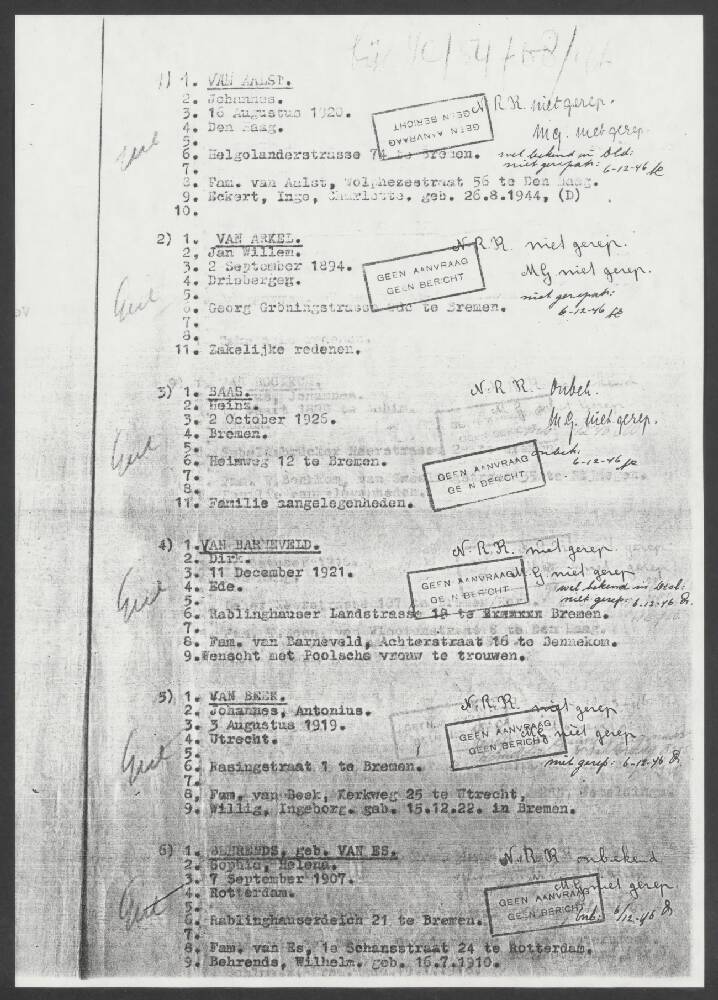 1) 1. VAN AALST.
2. Johannes.
3. 16 Augustus 1920.
N.R.R. niet gerep.
4. Den Haag.
GEEN AANVRAAG
GEEN BERICHT
M.G. niet gerep.
5.
6. Helgolanderstrasse 74 te Bremen.
wel bekend in Old:
niet gerepatr: 6-12-46
7.
8. Fam. van Aalst, Wolphezestraat 56 te Den Haag.
9. Eckert, Inge, Charlotte. geb. 26.8.1944, (D)
10.
2) 1. VAN ARKEL.
N.R.R. niet gerep.
2. Jan Willem.
3. 2 September 1894.
4. Driebergen.
GEEN AANVRAAG
GEEN BERICHT
M.G. niet gerep.
5.
niet gerepatr:
6-12-46
6. Georg Gröningstrasse te Bremen.
7.
8.
11. Zakelijke redenen.
3) 1. BAAS.
N.R.R. Onbek.
2. Heinz.
3. 2 October 1926.
M.G. niet gerep.
4. Bremen.
5.
6. Heimweg 12 te Bremen.
GEEN AANVRAAG
GEEN BERICHT
onbek.
6-12-46
7.
8.
11. Familie aangelegenheden.
4) 1. VAN BARNEVELD.
N.R.R. niet gerep
2. Dirk.
3. 11 December 1921.
4. Ede.
GEEN AANVRAAG
GEEN BERICHT
M.G. niet gerep
5.
wel bekend in
niet gerep: 6.12.46
6. Rablinghauser Landstrasse 19 te Bremen.
7.
8. Fam. van Barneveld, Achterstraat 16 te Bennekom.
9. Wenscht met Poolsche vrouw te trouwen.
5) 1. VAN BEEK.
N.R.R. niet gerep
2. Johannes, Antonius.
3. 3 Augustus 1919.
4. Utrecht.
GEEN AANVRAAG
GEEN BERICHT
M.G. niet gerep
5.
6. Rasingstraat 1 te Bremen.
niet gerep: 6-12-46
7.
8. Fam. van Beek, Kerkweg 25 te Utrecht,
9. Willig, Ingeborg. gab. 15.12.22. in Bremen.
6) 1. BEHRENDS, geb. VAN ES.
N.R.R. onbekend
2. Sophia, Helena.
3. 7 September 1907.
4. Rotterdam.
GEEN AANVRAAG
GEEN BERICHT
M.G. niet gerep
5.
6. Rablinghauserdeich 21 te Bremen.
onb: 6/12-46
7.
8. Fam. van Es, 1e Schansstraat 24 te Rotterdam.
9. Behrends, Wilhelm. geb. 16.7.1910.